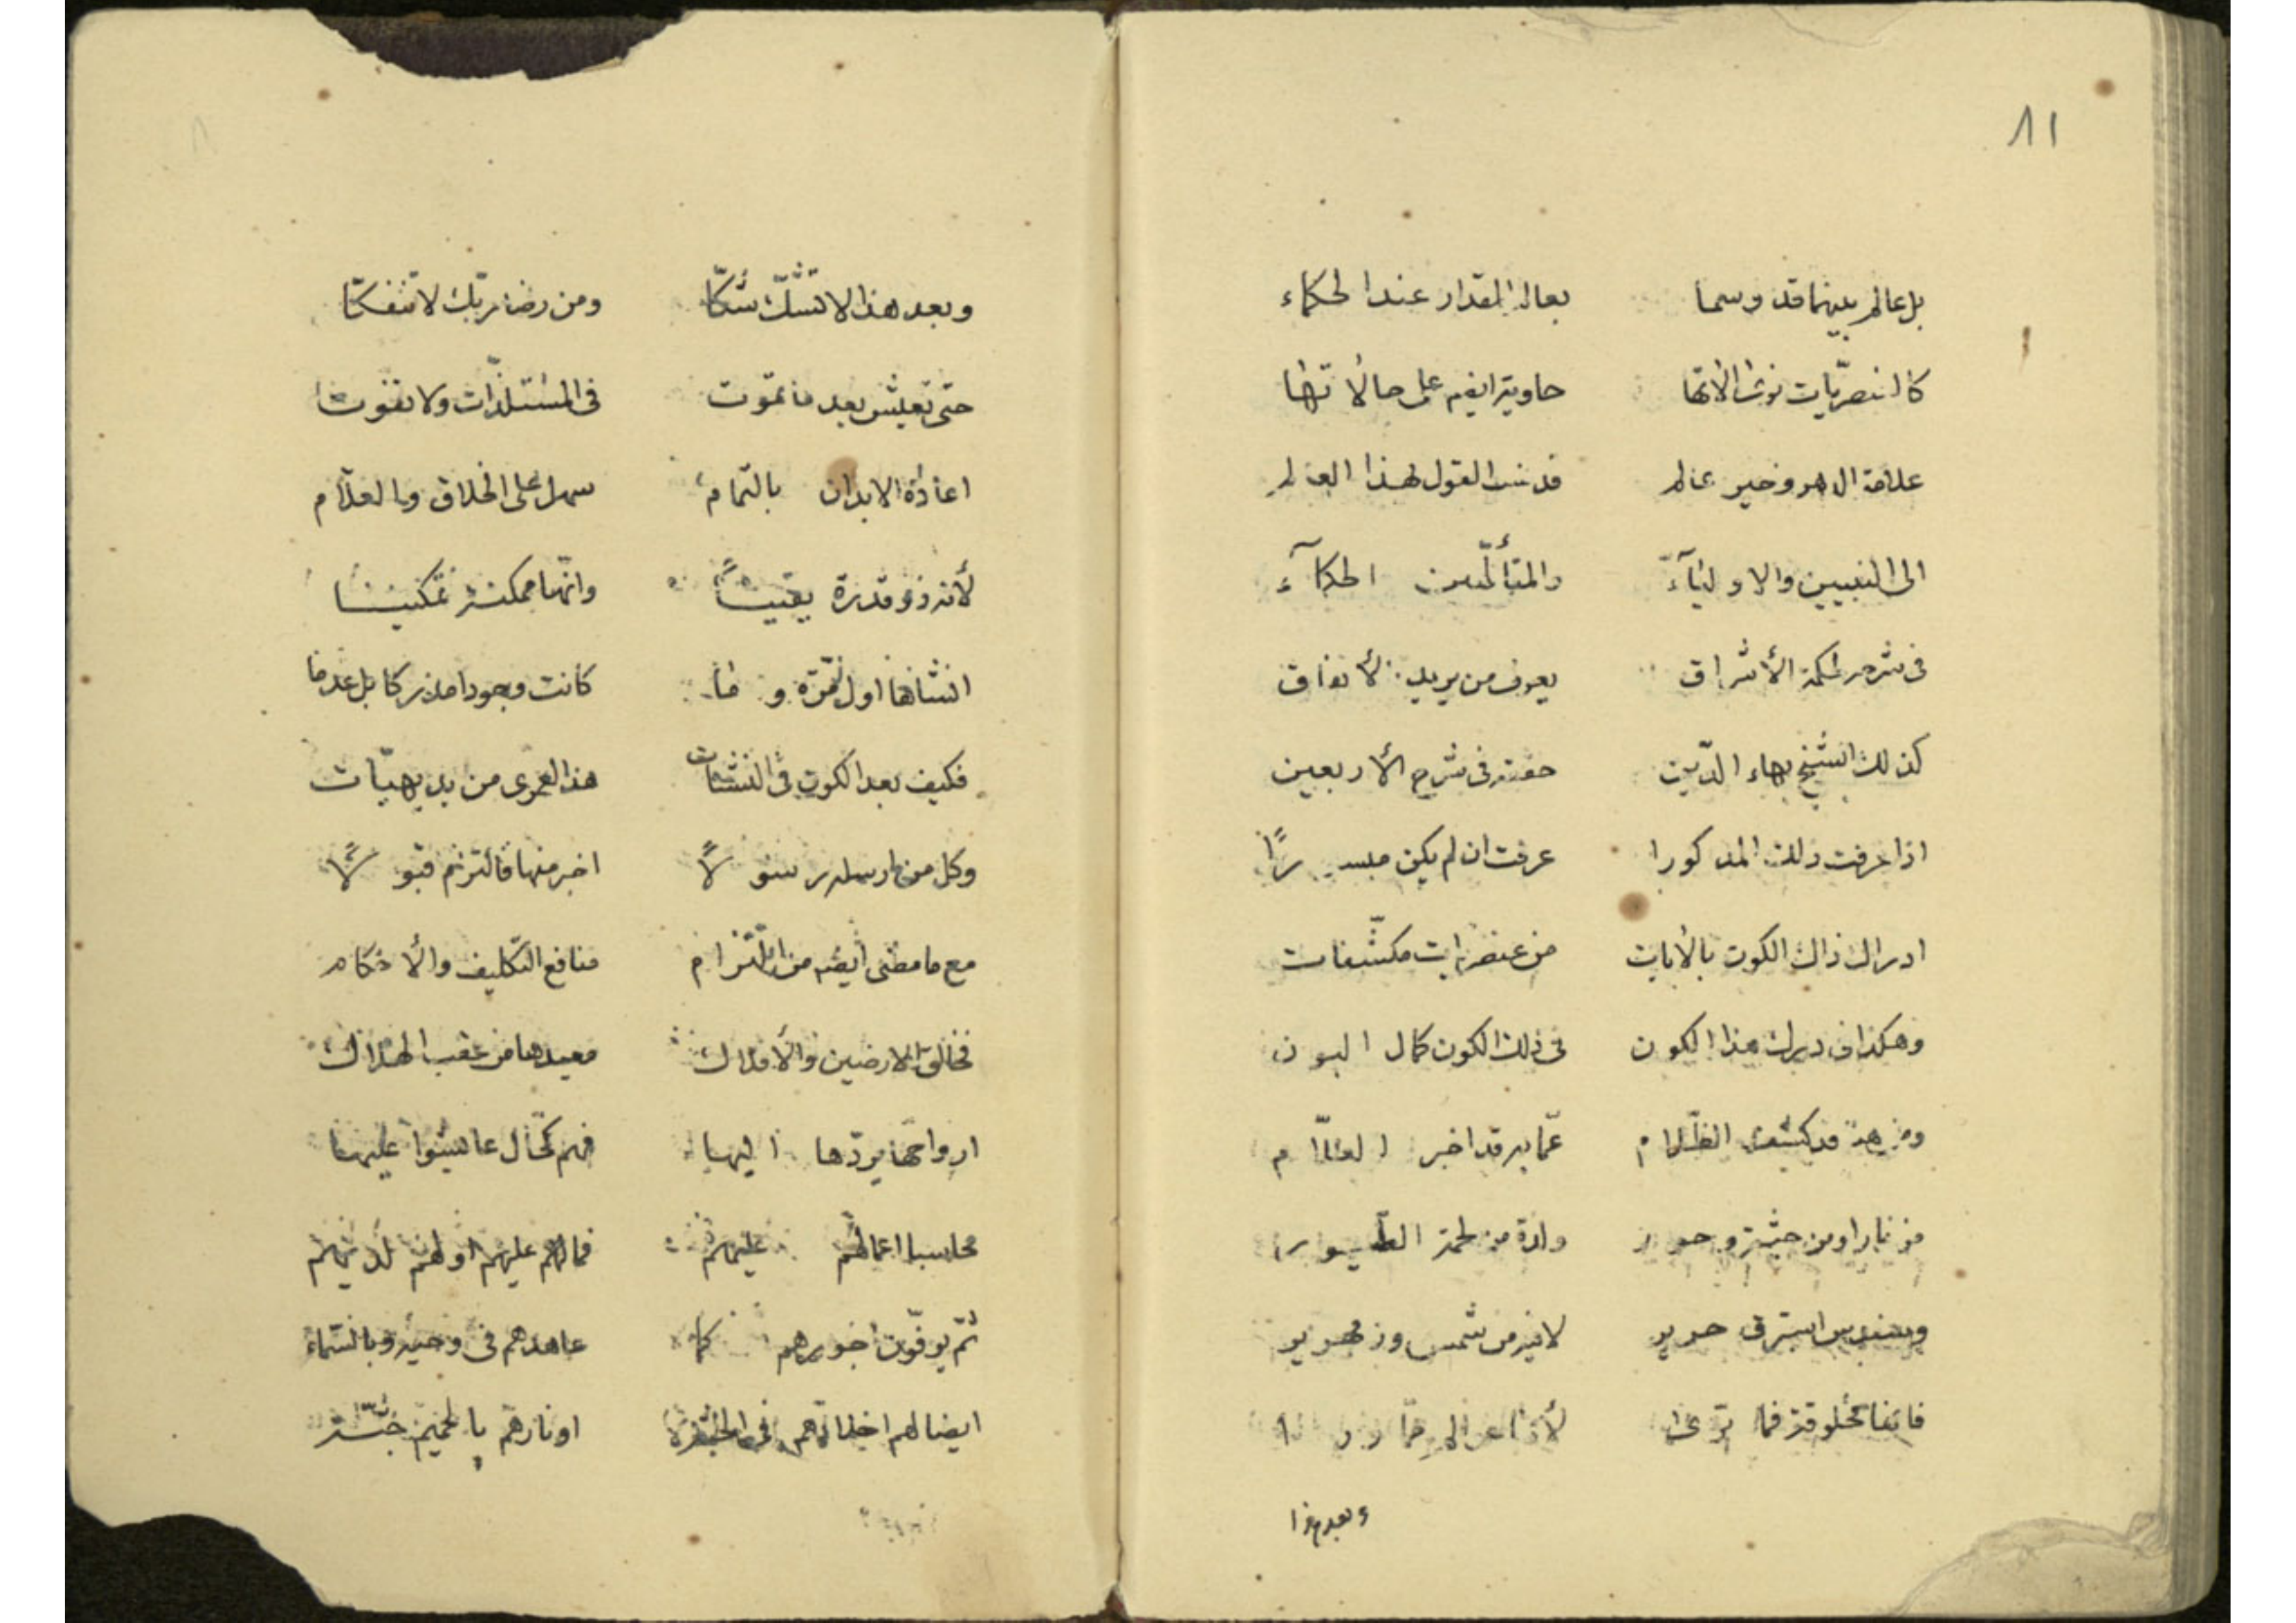 ٨١
بل عالم بينهما قد وسما بعالم المقدار عند الحكماء
حاوية ايضا على حالاتها
علامة الدهر وخير عالم قد نسب القول لهذا العالم
الى النبيين والاوليآء والمتألّهين الحكمآء
فى شرح حكمة الأشراق يعرف من يريد
كذلك الشيخ بهاء الدّين حققه فى شرح الأربعين
اذا عرفت ذلك المذكورا عرفت ان لم يكن ميسورًا
ادراك ذاك الكون بالأيات من عنصريات مكشّفات
وهكذا فى درك هذا الكون فى ذلك الكون كمال البون
قد كشف الظّلام عمّا به قد اخبر العلّام
من نار او من جنّة وحور ولذة من لحمة الطّيور
وسندس استبرق حرير لا فيه من شمس وزمهرير
فانها مخلوقة فما ترى
وبعد هذا
وبعد هذا لا تشكّ شكّا ومن رضا ربّك لا تنفكّا
حتى تعيش بعد ما تموت فى المستلذّات ولا تفوت
اعادة الابدان بالتمام سهل على الخلاق والعلّام
لأنه ذو قدرة يقينًا وانّها ممكنة تمكينا
انشاها اول مرّة وما كانت وجودا مدركا بل عدما
فكيف بعد الكون فى النشئات هذا لعمرى من بديهيّات
وكل من ارسله رسولًا اخبر منها فالتزم قبولًا
مع ما مضى ايضا من التزام منافع التكليف والأحكام
فخالق الارضين والأفلاك معيدها من عقب الهلاك
ارواحها يردّها اليها فهم كحال عاشوا عليها
محاسبا اعمالهم عليهم فمالهم عليهم او لهم لديهم
ثمّ يوفّون اجورهم كما عاهدهم فى وحيه وبالسّماء
ايضا لهم اخلاقهم اونارهم بالحميم جنّة